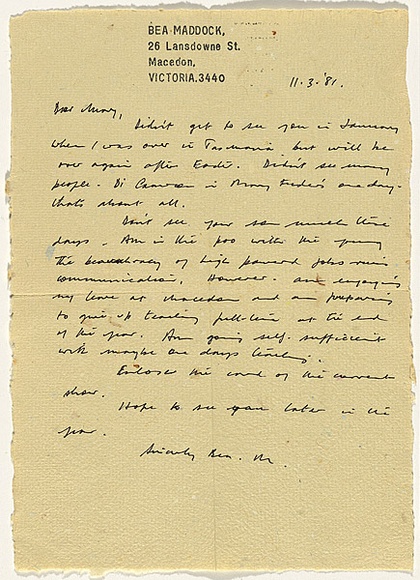 BEA MADDOCK,
26 Lansdowne St.
Macedon,
VICTORIA. 3440
11.3.'81.
Dear
Didn't get to see you in January
when I was over in Tasmania but will be
over again after Easter. Didn't see many
people. Di in one day-
that's about all.
Don't see your son much these
days. Am in the poo with the
the of high powered jobs
communication. However. am enjoying
my leave at Macedon and am preparing
to give up teaching full-time at the end
of the year. Am going self-sufficient
with maybe one days teaching.
Enclose the card of the current
show.
Hope to see you later in the
year.
Sincerely Bea. M.